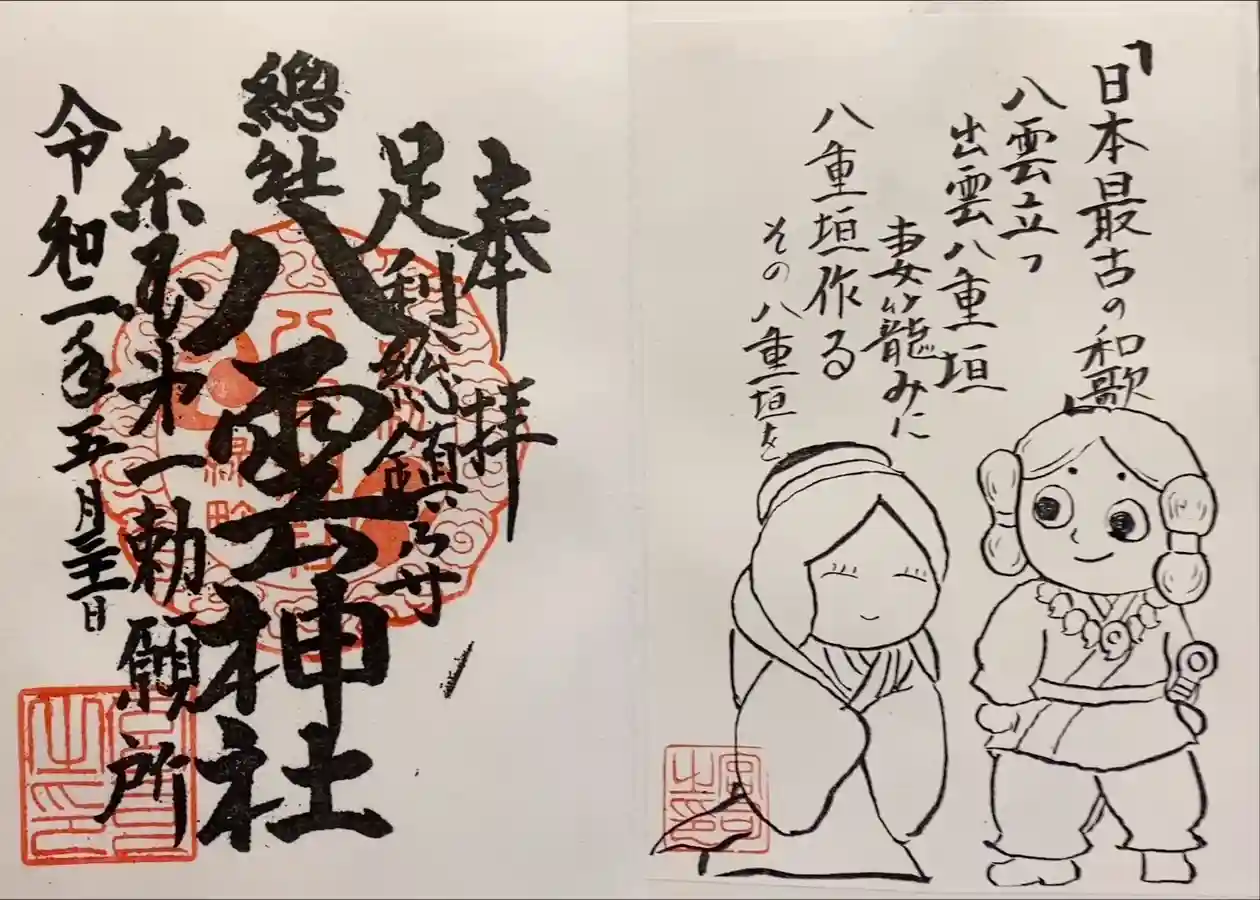 「日本最古の和歌」
八雲立つ
出雲八重垣
妻籠みに
八重垣作る
その八重垣を
宮司之印
奉拝
足利総鎮守
總社
八雲神社
東国第一勅願所
令和二年五月
宮司之印